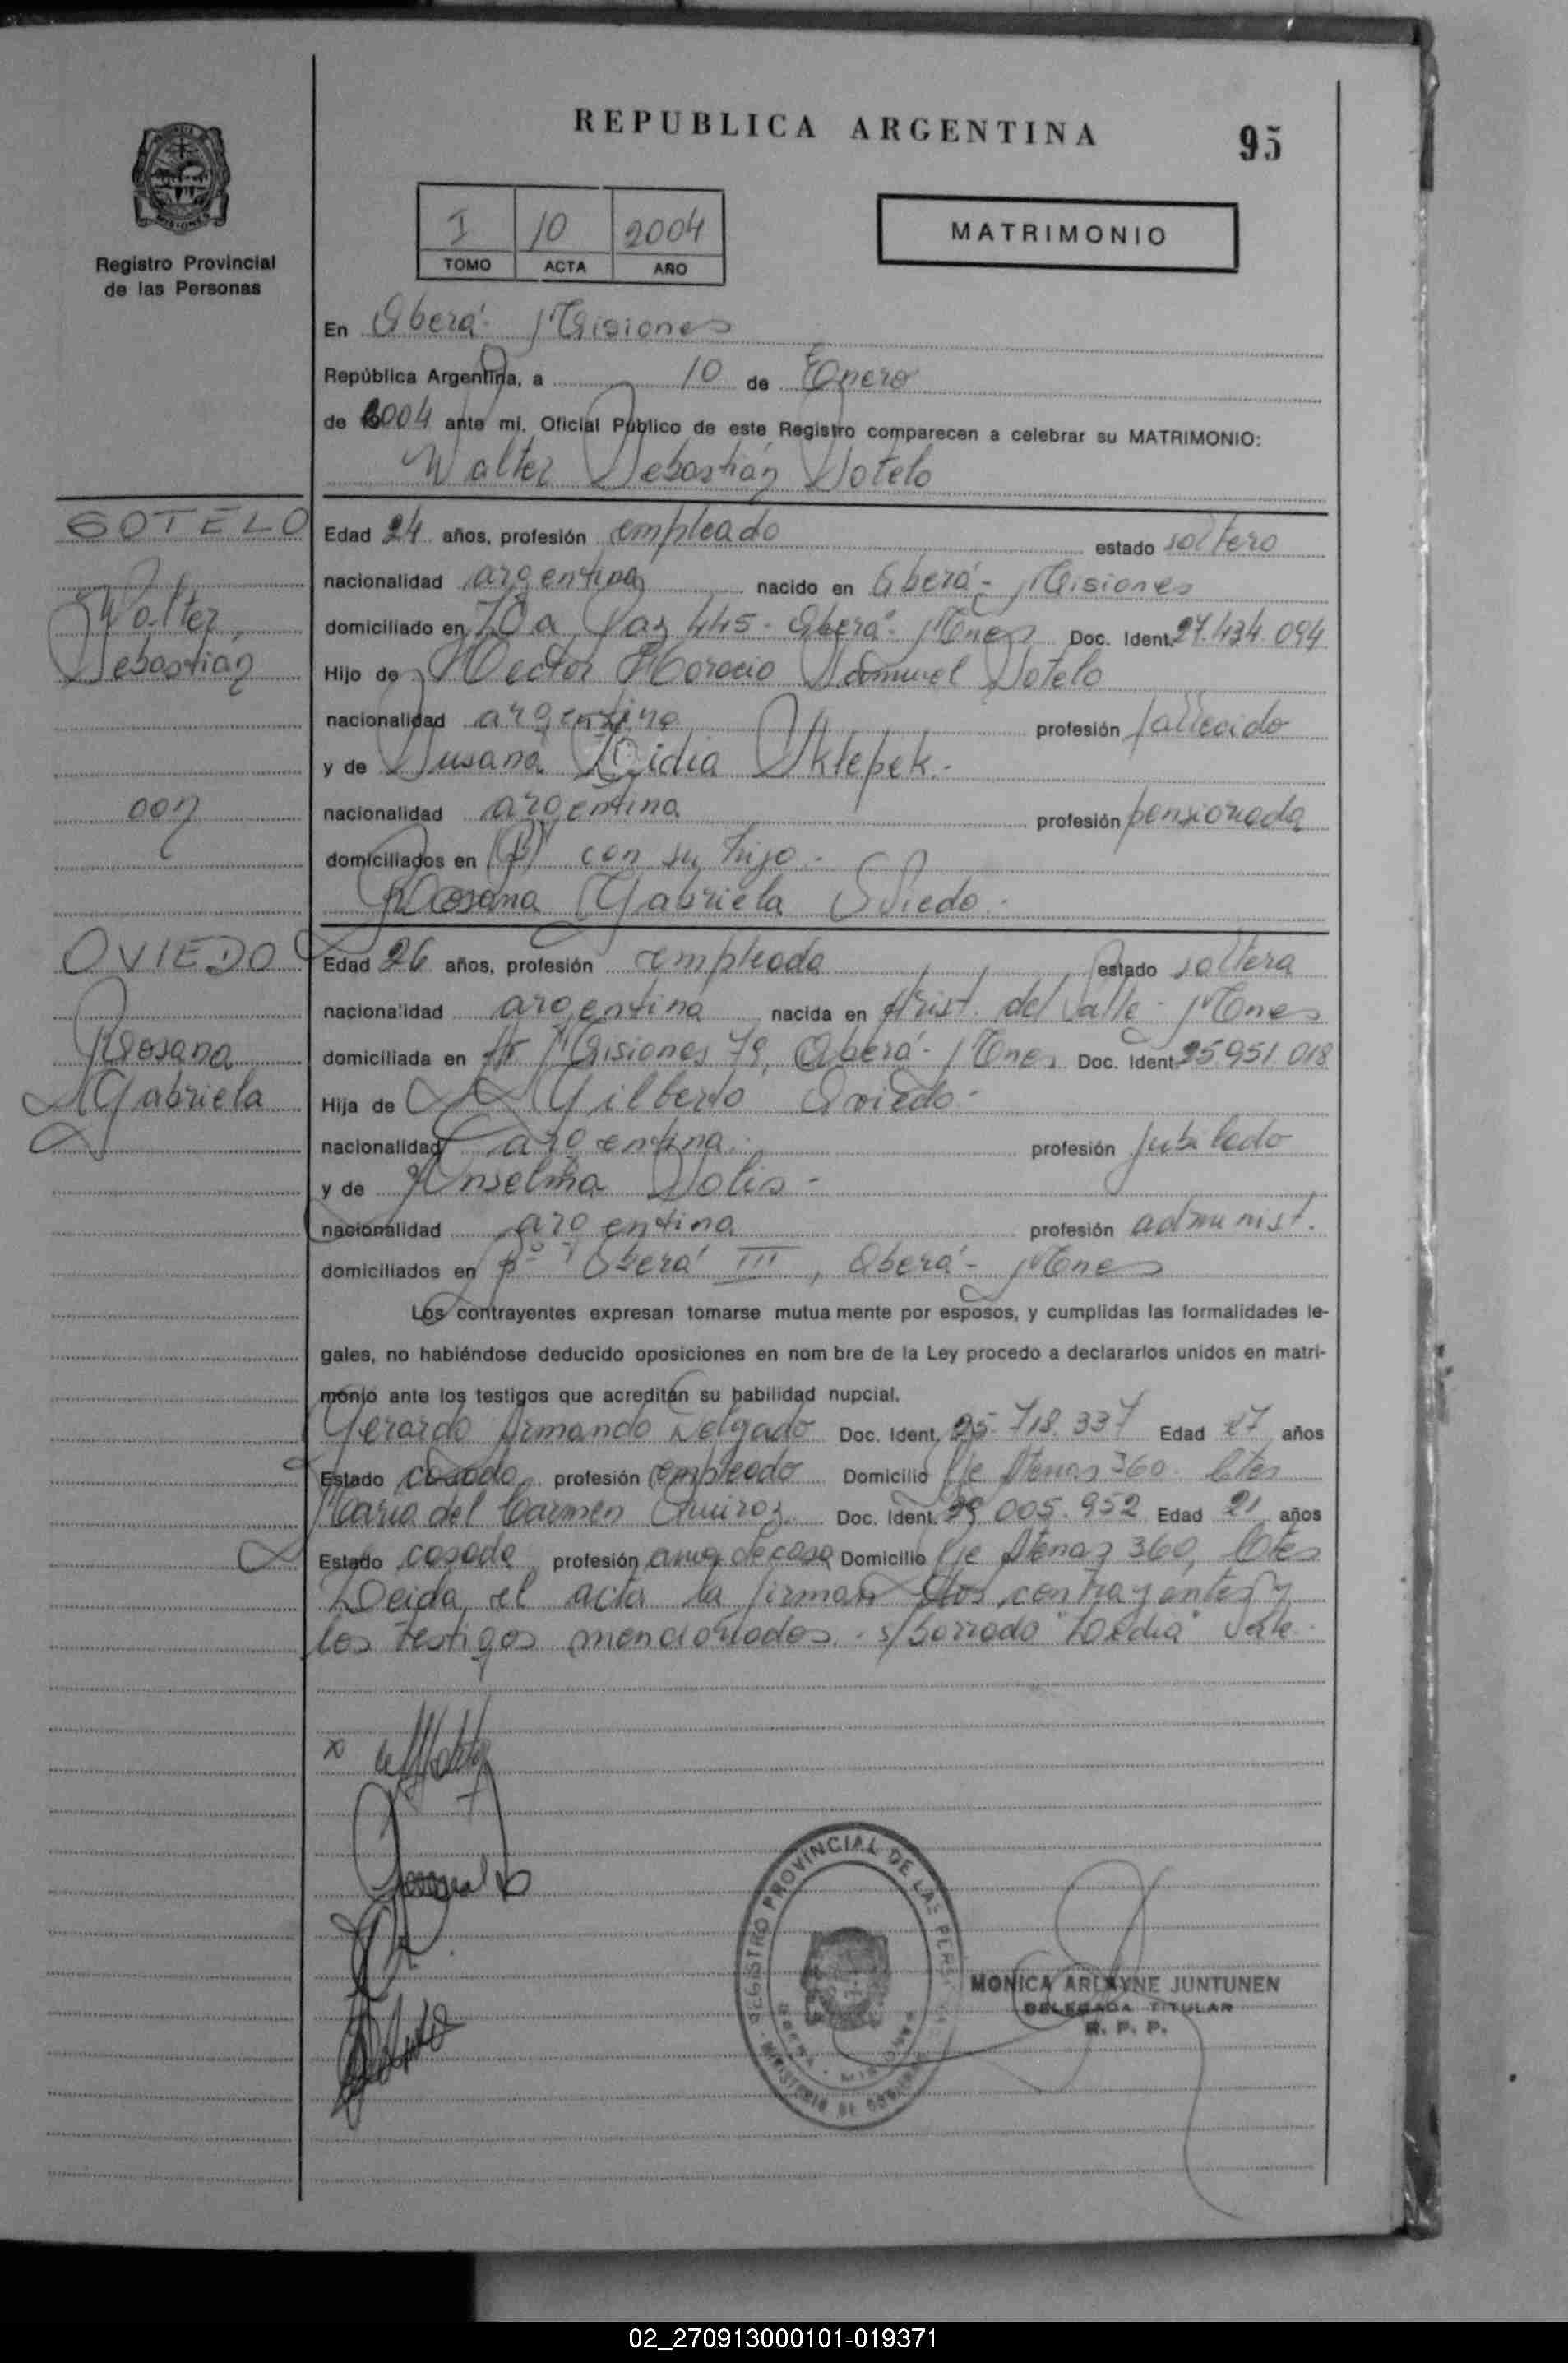 REPUBLICA ARGENTINA
95
I 10 2004
TOMO ACTA AÑO
MATRIMONIO
Registro Provincial
de las Personas
En Oberá - Misiones
República Argentina, a 10 de Enero
de 2004 ante mi, Oficial Público de este Registro comparecen a celebrar su MATRIMONIO:
Walter Sebastián Sotelo
SOTELO
Walter
Sebastián
con
OVIEDO
Rosana
Gabriela
Edad 24 años, profesión empleado estado soltero
nacionalidad argentina nacido en Oberá - Misiones
domiciliado en La Paz 445 - Oberá - Mnes Doc. Ident. 27.434.094
Hijo de Hector Horacio Samuel Sotelo
nacionalidad argentina profesión fallecido
y de Susana Lidia Sklepek.-
nacionalidad argentina profesión pensionada
domiciliados en con su hijo.-
Rosana Gabriela Oviedo.-
Edad 26 años, profesión empleada estado soltera
nacionalidad argentina nacida en Arist. del Valle - Mnes
domiciliada en Misiones 79, Oberá - Mnes Doc. Ident. 25.951.018
Hija de Gilberto Oviedo -
nacionalidad argentina. profesión jubilado
y de Anselma Solis -
nacionalidad argentina profesión administ.
domiciliados en Bº Oberá III, Oberá - Mnes
Los contrayentes expresan tomarse mutua mente por esposos, y cumplidas las formalidades le-
gales, no habiéndose deducido oposiciones en nom bre de la Ley procedo a declararlos unidos en matri-
monio ante los testigos que acreditan su habilidad nupcial.
Gerardo Armando Delgado Doc. Ident. 25.718.337 Edad 27 años
Estado casado profesión empleado Domicilio Pje Atenas 360. Ctes
Maria del Carmen Quiroz Doc. Ident. 29.005.952 Edad 21 años
Estado casada profesión ama de casa Domicilio Pje Atenas 360, Ctes
Leida el acta la firman los contrayentes y
los testigos mencionados. - s/borrado "Lidia" Vale.-
REGISTRO PROVINCIAL DE LAS PERSONAS
MINISTERIO DE GOBIERNO
MONICA ARLAYNE JUNTUNEN
DELEGADA TITULAR
R. P. P.
02_270913000101-019371